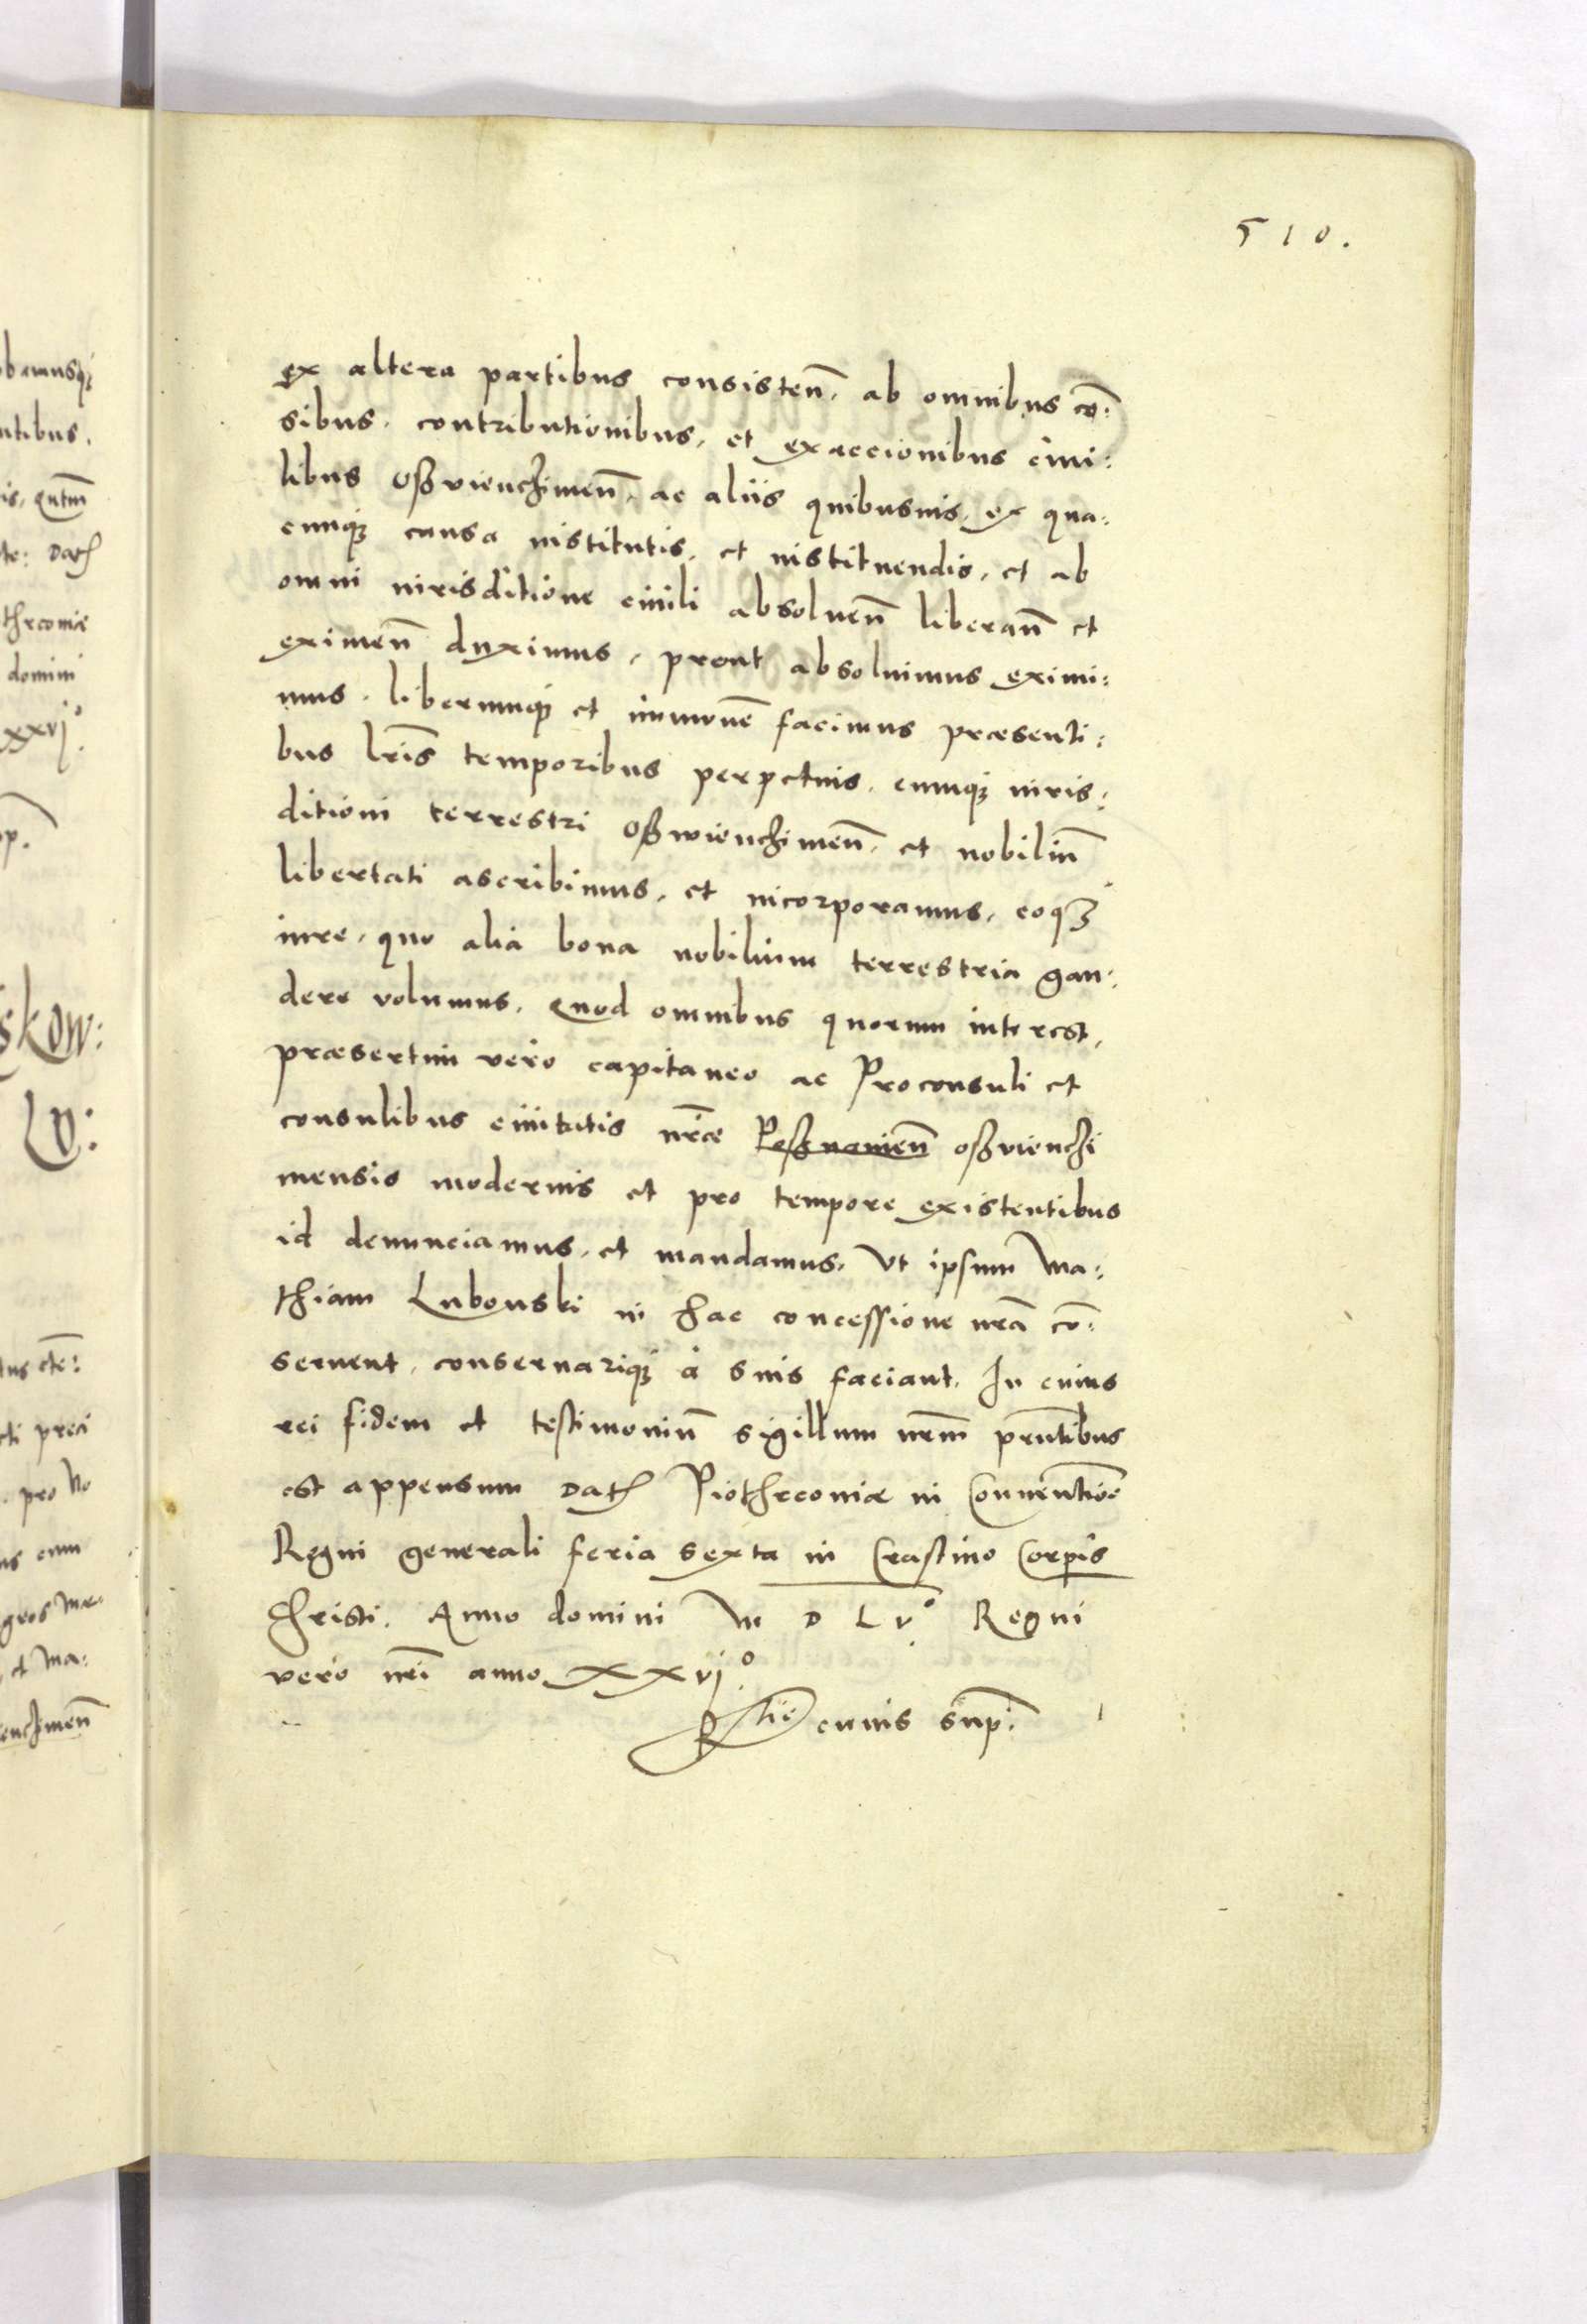 510.
ex altera partibus consisteñ. ab omnibus cẽ:
sibus. contributionibus, et exaccionibus ciui:
libus Oßvienchimeñ, ac aliis quibusuis, ex qua:
cunq; causa institutis, et instituendis, et ab
omni iurisditione ciuili absolueñ liberañ et
eximeñ duximus, prout absoluimus eximi:
mus. liberumq; et immunẽ facimus præsenti:
bus lr̃is temporibus perpetuis. eumq; iuris:
ditioni terrestri Oßwienchimeñ, et nobiliũ
libertati ascribimus, et incorporamus, eoq;
iure, quo alia bona nobilium terrestria gau:
dere volumus. Quod omnibus quorum interest,
præsertim vero capitaneo ac Proconsuli et
consulibus ciuitatis nr̃æ Poßnanieñ oßvienchi
mensis modernis et pro tempore existentibus
id denunciamus, et mandamus, Vt ipsum Ma:
thiam Lubowski in hac concessione nr̃a cõ:
seruent, conseruariq; à suis faciant. In cuius
rei fidem et testimoniũ sigillum nr̃m pñtibus
est appensum Dat Piothrcouiæ in Conuentiõe
Regni generali feria sexta in Crastino Corp̃is
Christi. Anno domini M D L vº. Regni
vero nr̃i anno XXvjº.
Rtiõ cuius sup.
bamusq;
ntibus.
is, Quem̃
te: Dat
thrcouiæ
domini
xxvjº.
p.
skow:
Lv:
tus etc:
cti preci
pro No
ns cum
gros Ma:
et Ma:
ienchimeñ